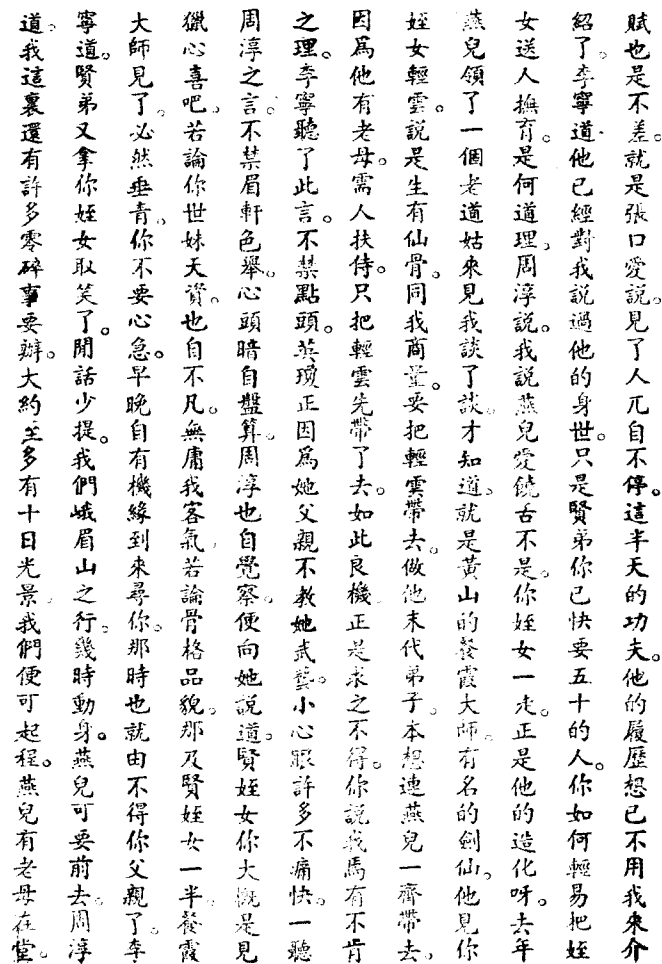 賦也是不差。就是張口愛說。見了人兀自不停。這半天的功夫。他的履歷想已不用我來介
紹了。李寧道。他已經對我說過他的身世。只是賢弟你已快要五十的人。你如何輕易把姪
女送人撫育。是何道理。周淳說。我說燕兒愛饒舌不是。你姪女一走。正是他的造化呀。去年
燕兒領了一個老道姑來見我。談了談。才知道。就是黃山的餐霞大師。有名的劍仙。他見你
姪女輕雲。說是生有仙骨。同我商量。要把輕雲帶去。做他末代弟子。本想連燕兒一齊帶去。
因爲他有老母。需人扶侍。只把輕雲先帶了去。如此良機。正是求之不得。你說我焉有不肯
之理。李寧聽了此言。不禁點頭。英瓊正因爲她父親不教她武藝。小心眼許多不痛快。一聽
周淳之言。不禁眉軒色舉。心頭暗自盤算。周淳也自覺察。便向她說道。賢姪女你大槪是見
獵心喜吧。若論你世妹天資。也自不凡。無庸我客氣。若論骨格品貌。那及賢姪女一半。餐霞
大師見了。必然垂青。你不要心急。早晚自有機緣到來尋你。那時也就由不得你父親了。李
寧道。賢弟又拿你姪女取笑了。閒話少提。我們峨眉山之行。幾時動身。燕兒可要前去。周淳
道。我這裏還有許多零碎事要辦。大約至多有十日光景。我們便可起程。燕兒有老母在堂。